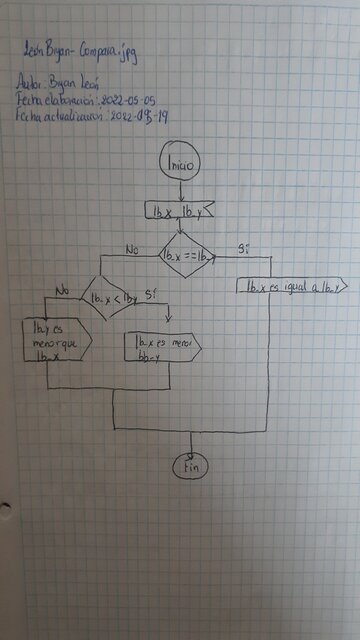 León Bryan-Compara.jpg
Autor: Bryan León
Fecha elaboración: 2022-05-05
Fecha actualización: 2022-05-19
Inicio
lb_x, lb_y
No
lb_x == lb_y
Sí
No
lb_x < lb_y
Sí
lb_x es igual a lb_y
lb_y es
menor que
lb_x
lb_x es menor
lb_y
Fin